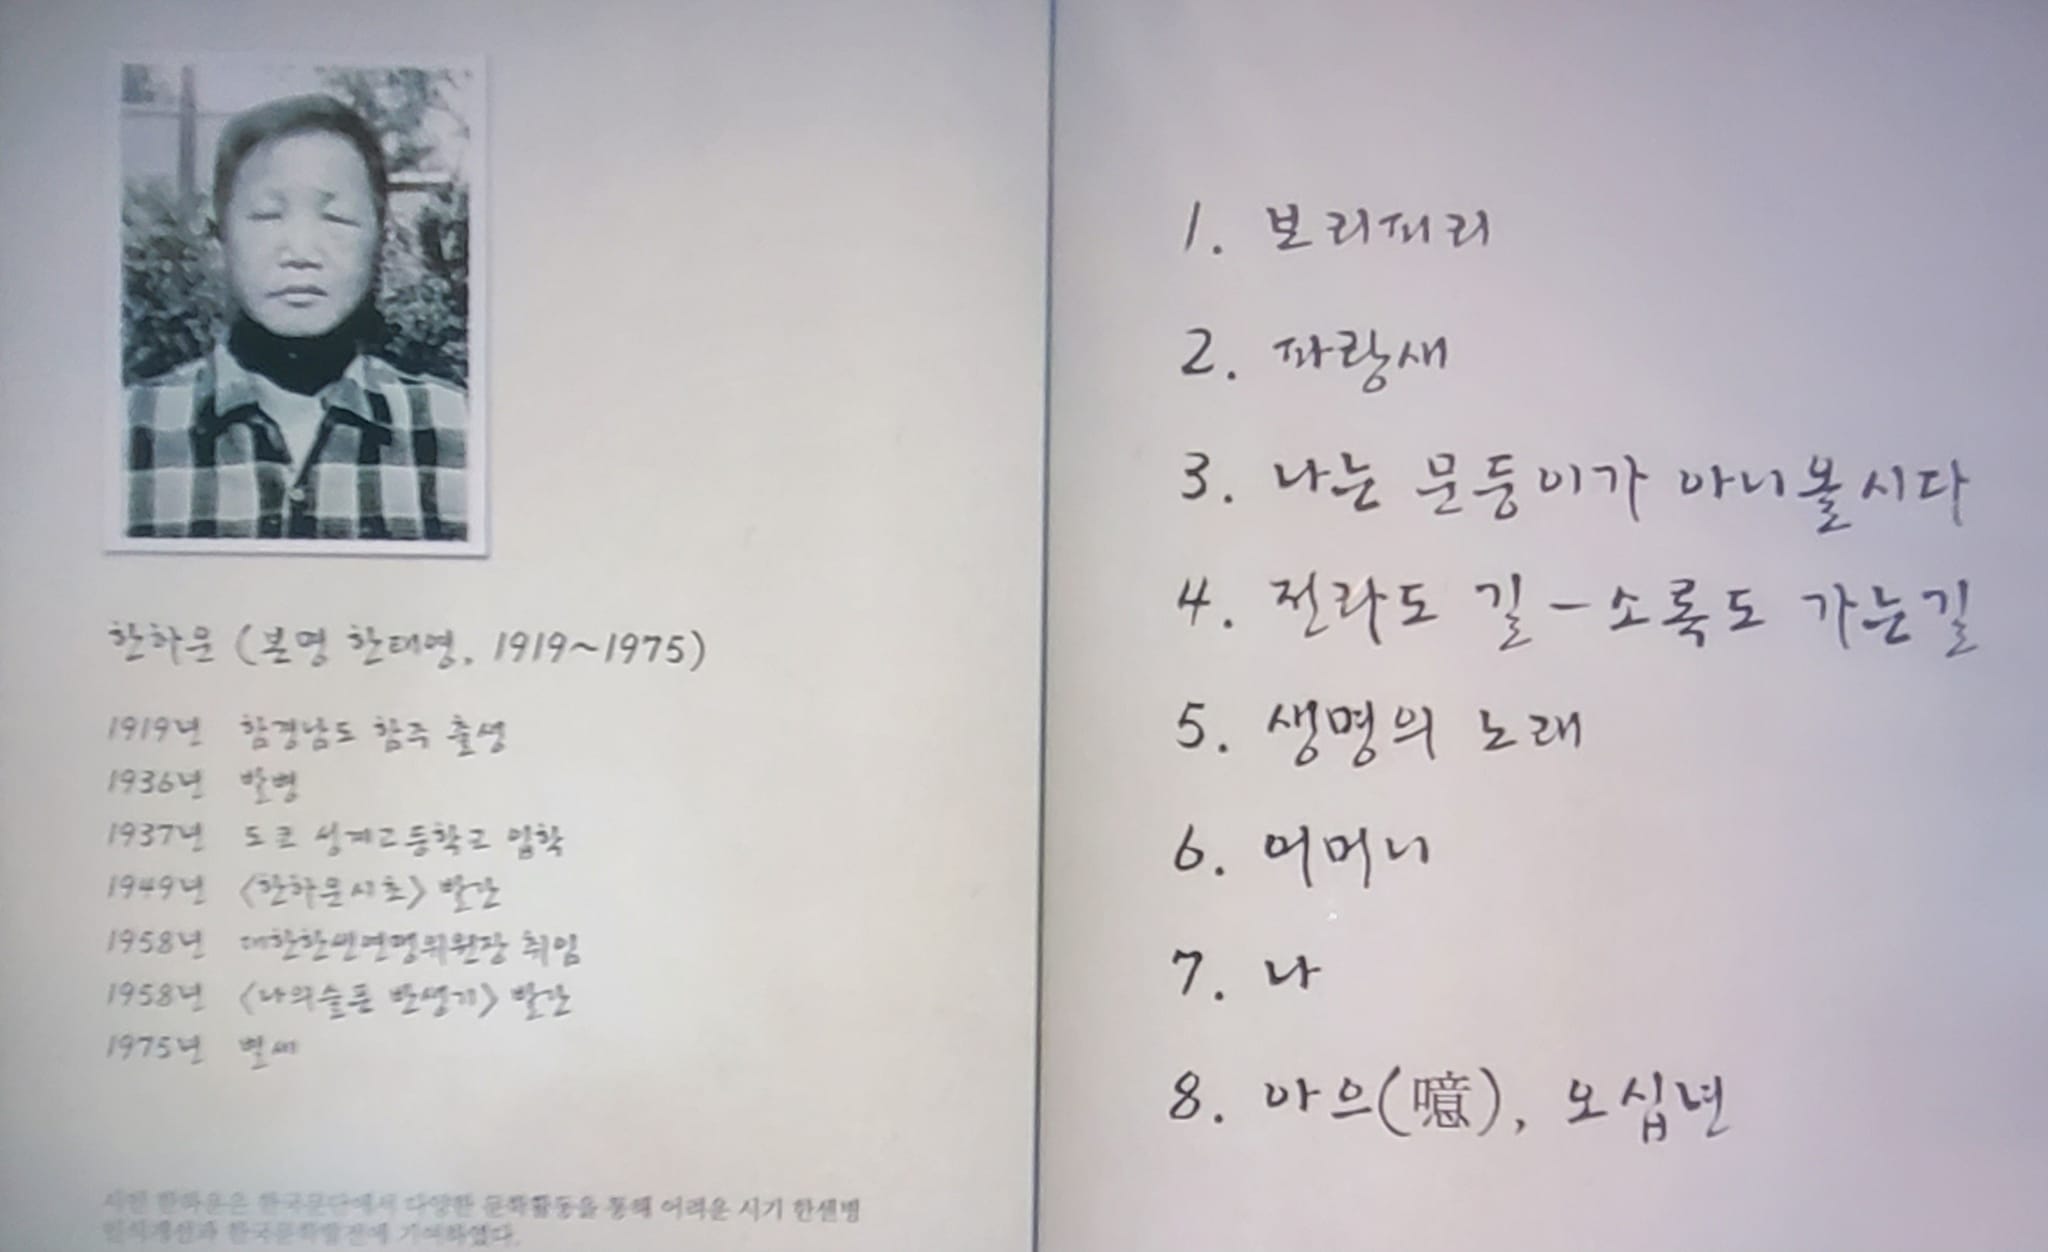 한하운 (본명 한태영, 1919~1975)
1919년 함경남도 함주 출생
1936년 발병
1937년 도쿄 성계고등학교 입학
1949년 <한하운시초> 발간
1958년 대한한센연맹위원장 취임
1958년 <나의슬픈 반생기> 발간
1975년 별세
시인 한하운은 한국문단에서 다양한 문학활동을 통해 어려운 시기 한센병
인식개선과 한국문학발전에 기여하였다.
1. 보리피리
2. 파랑새
3. 나는 문둥이가 아니올시다
4. 전라도 길 - 소록도 가는길
5. 생명의 노래
6. 어머니
7. 나
8. 아으(噫), 오십년